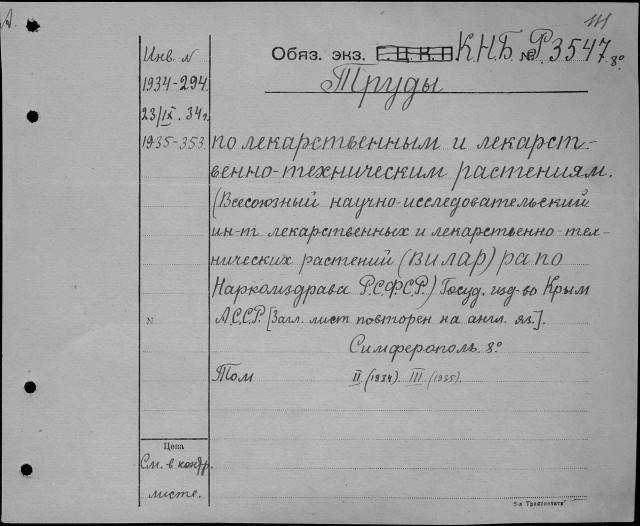 Инв. N
1934-294.
23/IX. 34 г.
1935-353.
Обяз. экз. Г.Ц.К.П К.Н.Б. № Р 3547 г. 8°
Труды
по лекарственным и лекарст-
венно-техническим растениям.
(Всесоюзный научно-исследовательский
ин-т лекарственных и лекарственно-тех-
нических растений (ВИЛАР) РАПО
Наркомздрава Р.С.Ф.С.Р.) Госуд. изд-во Крым
А.С.С.Р. [Загл. лист повторен на англ. яз.].
Симферополь. 8°.
Том II. (1934). III. (1935).
Цена
См. в контр.
листе.